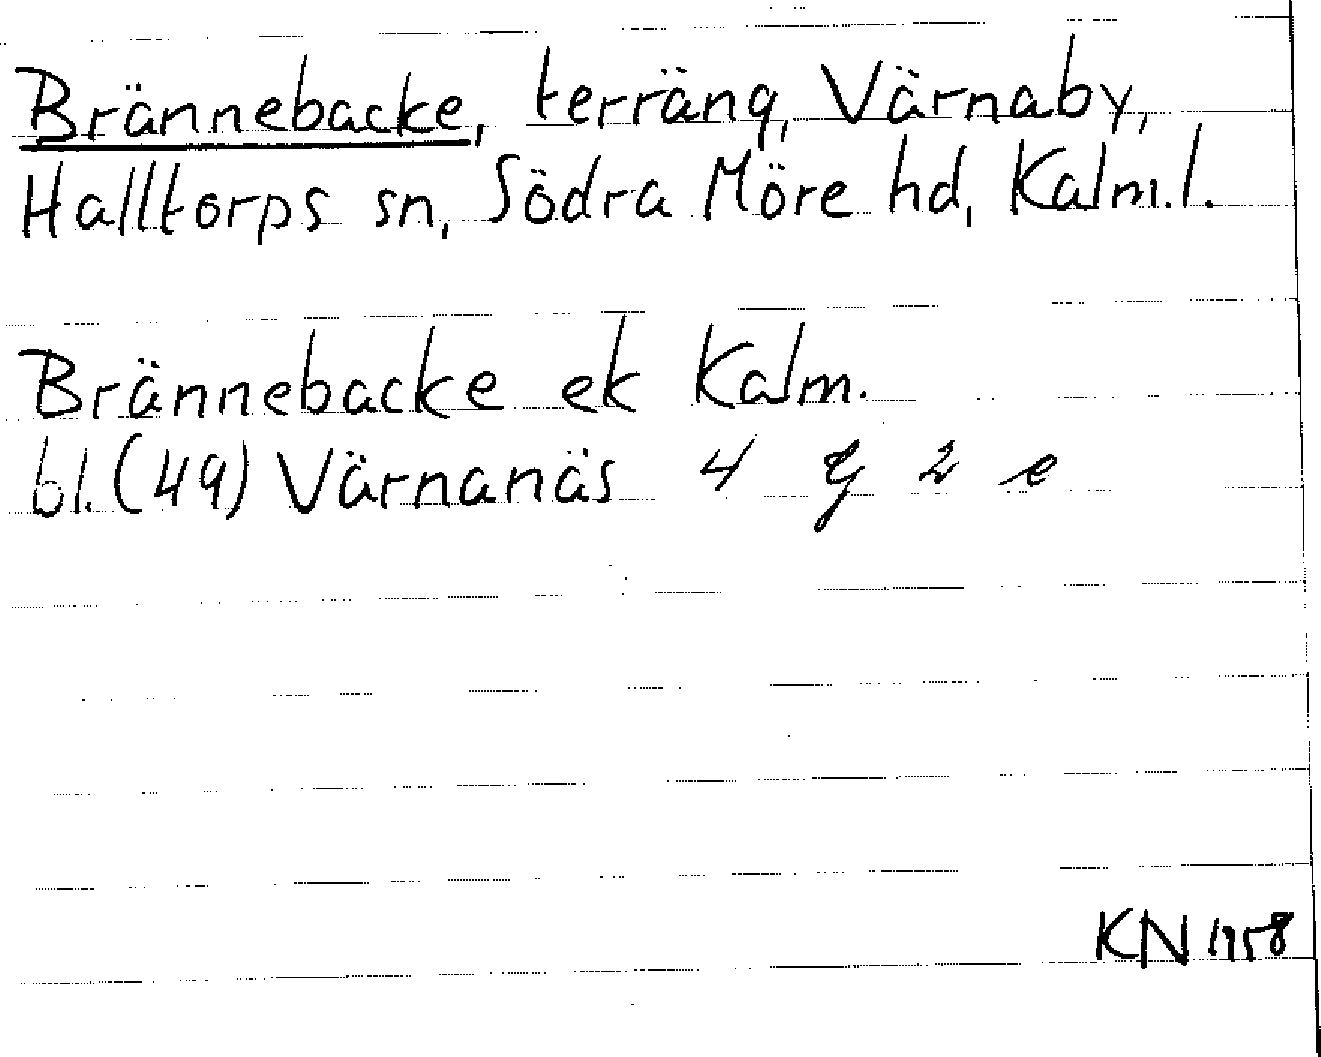 Brännebacke, terräng, Värnaby,
Halltorps sn, Södra Möre hd, Kalm.l.
Brännebacke ek Kalm.
bl. (49) Värnanäs 4 G 2 e
KN 1958